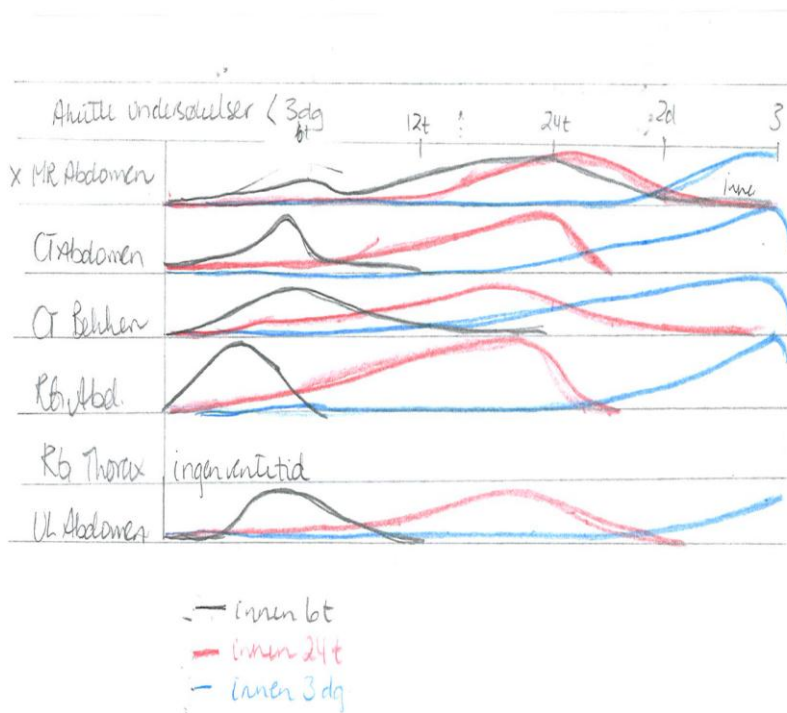 Akutte undersøkelser < 3dg
6t 12t 24t 2d 3
x MR Abdomen
inne
CT Abdomen
CT Bekken
RG. Abd.
RG Thorax ingen ventetid
UL Abdomen
innen 6t
innen 24t
innen 3dg